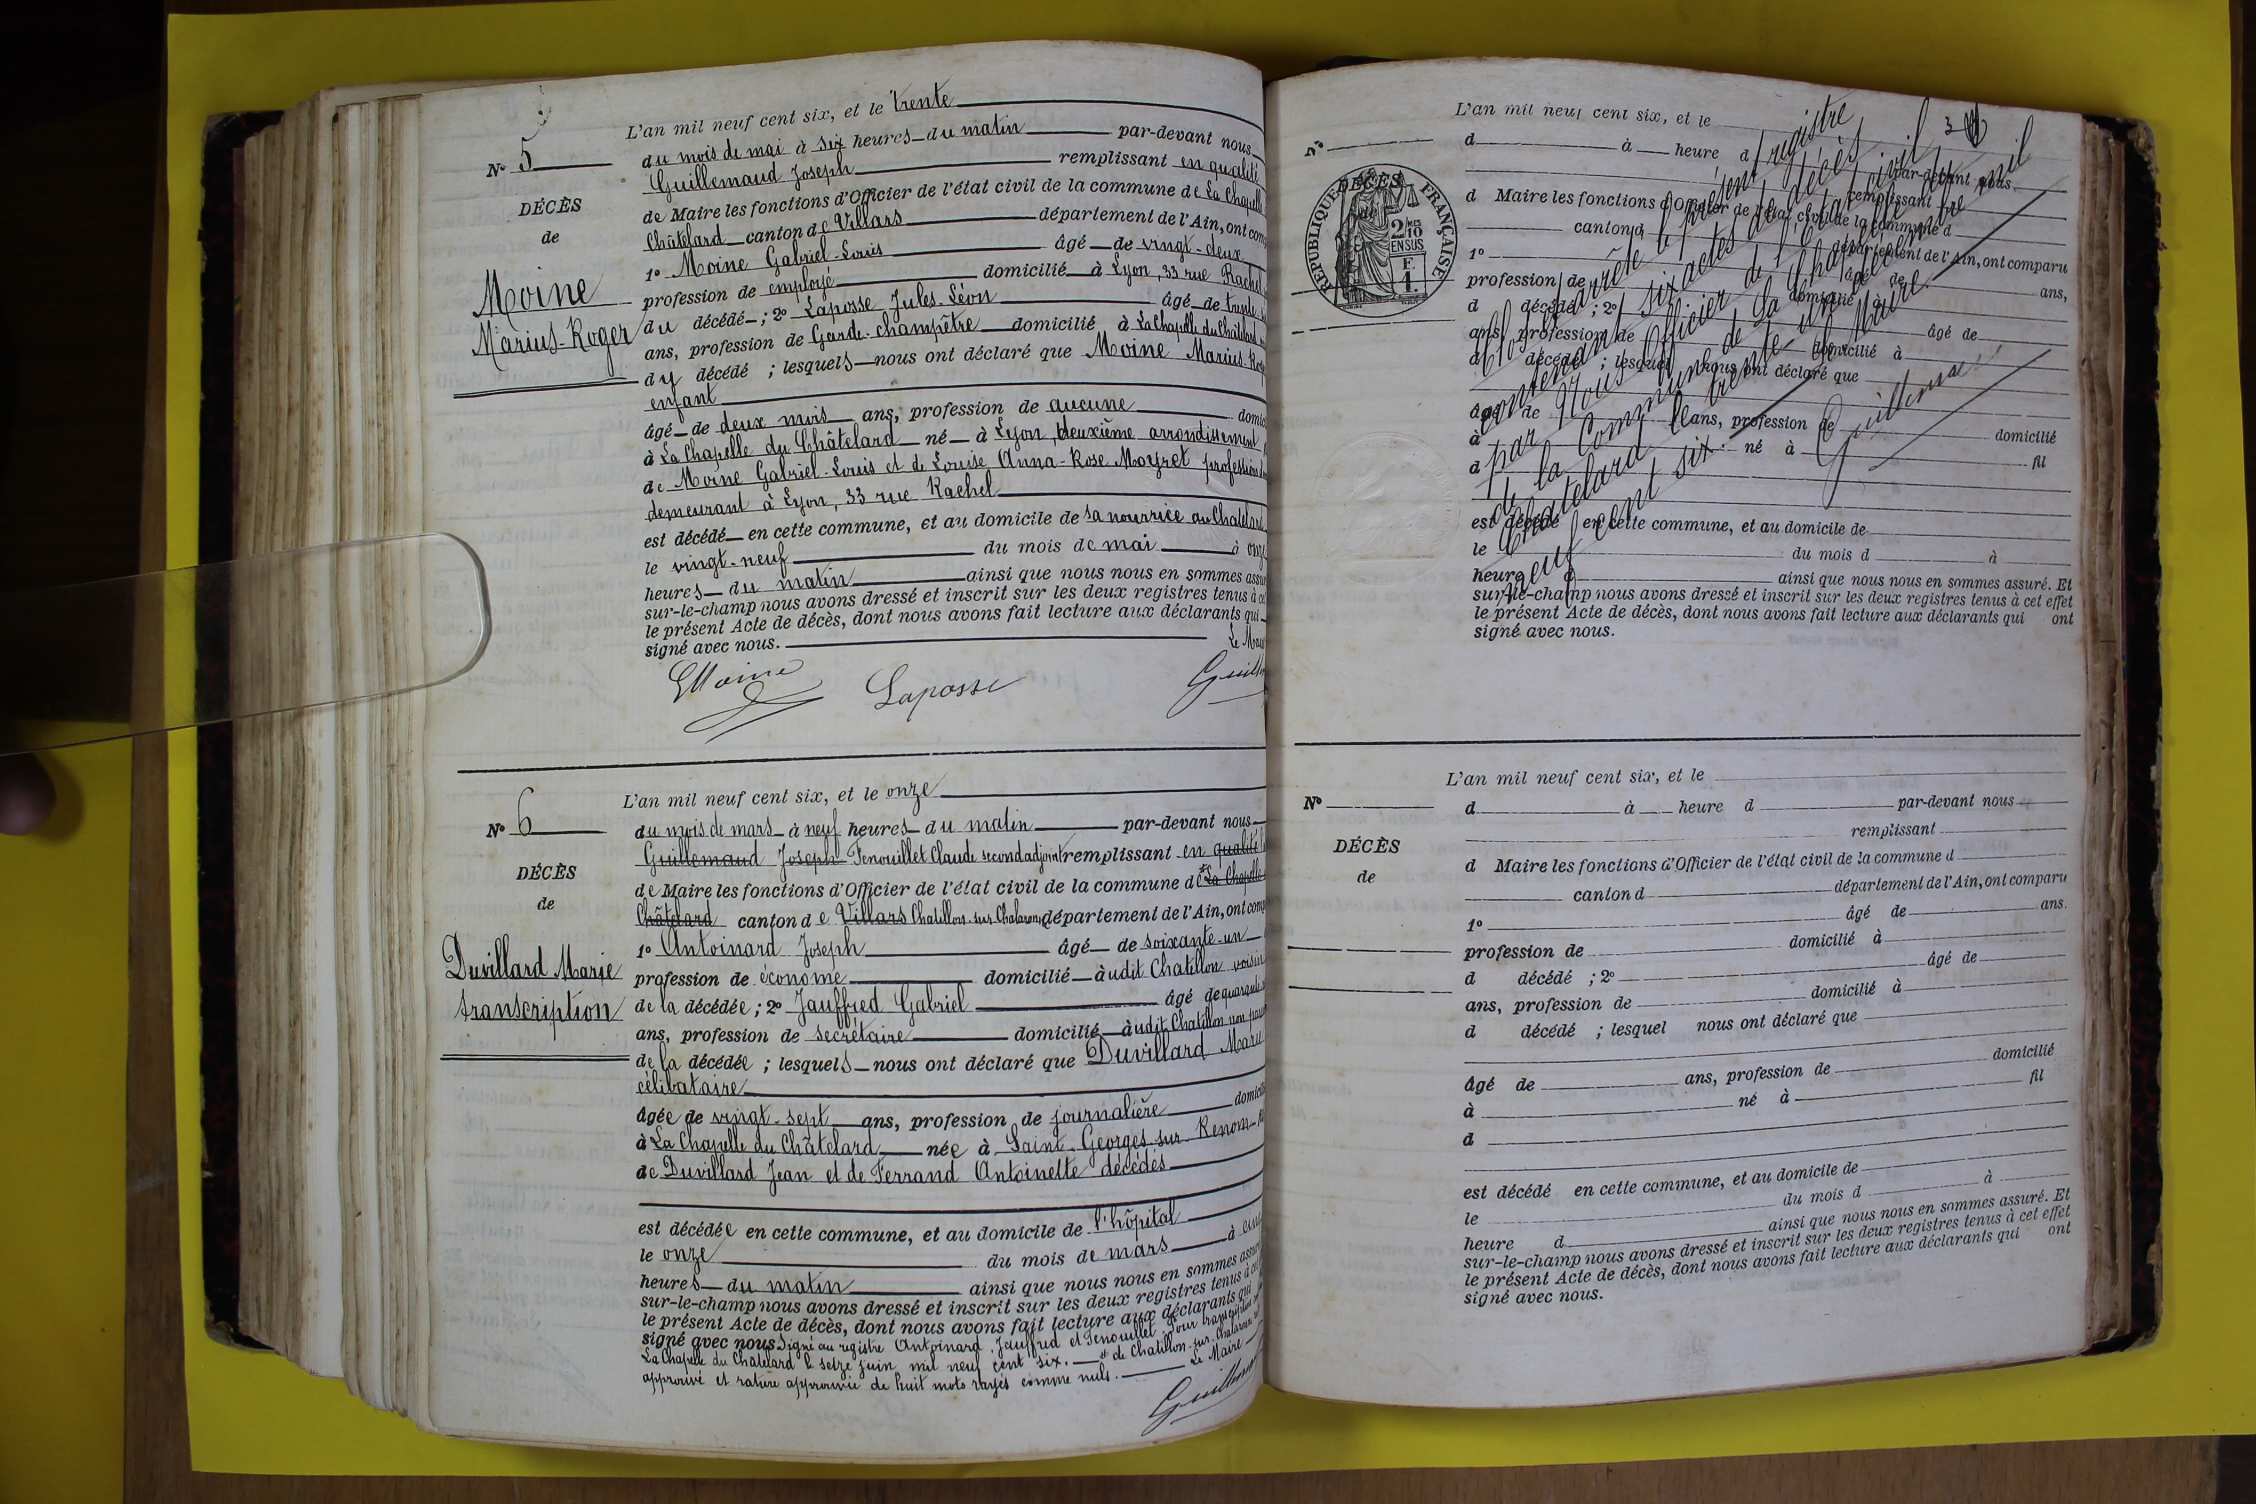 L'an mil neuf cent six, et le trente
Nº 5
du mois de mai à six heures du matin par-devant nous
Guillemaud Joseph remplissant en qualité
DÉCÈS
de
de Maire les fonctions d'Officier de l'état civil de la commune de La Chapelle
Châtelard canton de Villars département de l'Ain, ont com
1º Moine Gabriel-Louis âgé de vingt-deux
Moine
Marius-Roger
profession de employé domicilié à Lyon, 33 rue Rachel
du décédé ; 2º Laposse Jules-Léon âgé de trente
ans, profession de Garde-champêtre domicilié à La Chapelle du Châtelard
du décédé ; lesquels nous ont déclaré que Moine Marius-Rog
enfant
âgé de deux mois ans, profession de aucune domic
à La Chapelle du Châtelard né à Lyon deuxième arrondissement
de Moine Gabriel-Louis et de Louise Anna-Rose Moyret profession
demeurant à Lyon, 33 rue Rachel
est décédé en cette commune, et au domicile de sa nourrice au Chatelard
le vingt-neuf du mois de mai à onze
heures du matin ainsi que nous nous en sommes assu
sur-le-champ nous avons dressé et inscrit sur les deux registres tenus à ce
le présent Acte de décès, dont nous avons fait lecture aux déclarants qui
signé avec nous.
Le Maire
GMoine Laposse Guillem
L'an mil neuf cent six, et le onze
Nº 6
du mois de mars à neuf heures du matin par-devant nous
Guillemaud Joseph Fenouillet Claude second adjoint remplissant en qualité
DÉCÈS
de
de Maire les fonctions d'Officier de l'état civil de la commune de La Chapelle
Châtelard canton de Villars Chatillon-sur-Chalaronne département de l'Ain, ont comp
1º Antoinard Joseph âgé de soixante-un
Duvillard Marie
transcription
profession de économe domicilié à udit Chatillon voisin
de la décédée ; 2º Jauffred Gabriel âgé de quarante
ans, profession de secrétaire domicilié à udit Chatillon non
de la décédée ; lesquels nous ont déclaré que Duvillard Marie
célibataire
âgée de vingt-sept ans, profession de journalière domicili
à La Chapelle du Châtelard née à Saint-Georges-sur-Renom fil
de Duvillard Jean et de Ferrand Antoinette décédés
est décédée en cette commune, et au domicile de l'hôpital
le onze du mois de mars à cinq
heures du matin ainsi que nous nous en sommes assur
sur-le-champ nous avons dressé et inscrit sur les deux registres tenus à cet
le présent Acte de décès, dont nous avons fait lecture aux déclarants qui
signé avec nous. Signé au registre Antoinard, Jauffred et Fenouillet. Pour transcription
La Chapelle du Châtelard le seize juin mil neuf cent six. de Chatillon-sur-Chalaronne
approuvé et rature approuvée de huit mots rayés comme nuls. Le Maire
Guillemaud
L'an mil neuf cent six, et le
Nº
d à heure d par-devant nous
remplissant
DÉCÈS
RÉPUBLIQUE FRANÇAISE
2/10 EN SUS
F. 1.
d Maire les fonctions d'Officier de l'état civil de la commune d
canton d département de l'Ain, ont comparu
1º âgé de ans,
profession de domicilié à
d décédé ; 2º âgé de
ans, profession de domicilié à
d décédé ; lesquel nous ont déclaré que
âgé de ans, profession de domicilié
à né à fil
d
est décédé en cette commune, et au domicile de
le du mois d à
heure d ainsi que nous nous en sommes assuré. Et
sur-le-champ nous avons dressé et inscrit sur les deux registres tenus à cet effet
le présent Acte de décès, dont nous avons fait lecture aux déclarants qui ont
signé avec nous.
Clos et arrêté le présent registre
contenant six actes de décès
par Nous Officier de l'état civil
de la Commune de La Chapelle du
Châtelard le trente un décembre mil
neuf cent six. Le Maire.
Guillemaud
L'an mil neuf cent six, et le
Nº
d à heure d par-devant nous
remplissant
DÉCÈS
de
d Maire les fonctions d'Officier de l'état civil de la commune d
canton d département de l'Ain, ont comparu
1º âgé de ans.
profession de domicilié à
d décédé ; 2º âgé de
ans, profession de domicilié à
d décédé ; lesquel nous ont déclaré que
âgé de ans, profession de domicilié
à né à fil
d
est décédé en cette commune, et au domicile de
le du mois d à
heure d ainsi que nous nous en sommes assuré. Et
sur-le-champ nous avons dressé et inscrit sur les deux registres tenus à cet effet
le présent Acte de décès, dont nous avons fait lecture aux déclarants qui ont
signé avec nous.